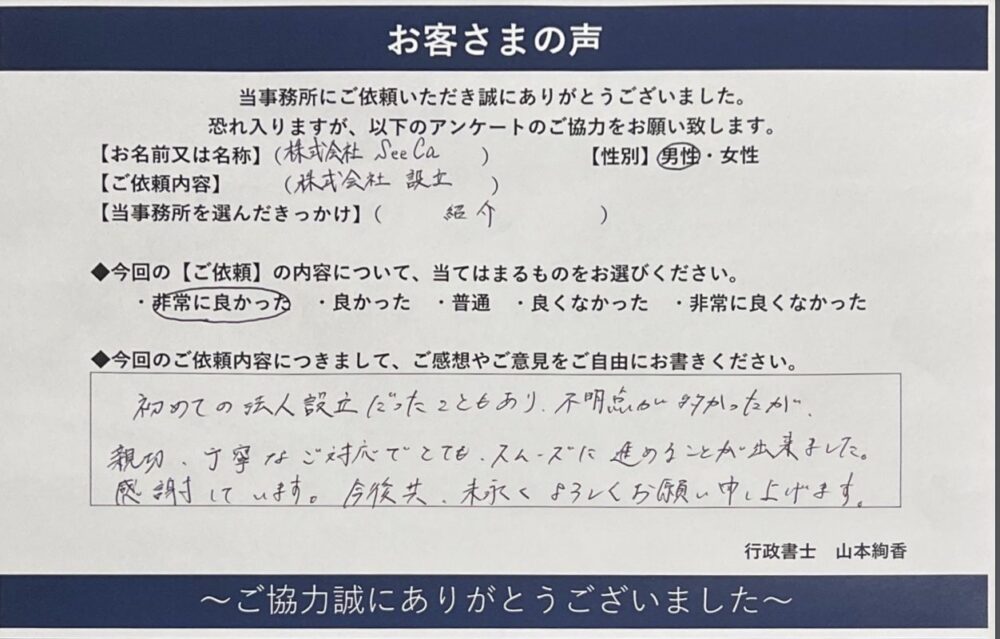 お客さまの声
当事務所にご依頼いただき誠にありがとうございました。
恐れ入りますが、以下のアンケートのご協力をお願い致します。
【お名前又は名称】(株式会社 SeeCa )　【性別】男性・女性
【ご依頼内容】 (株式会社 設立 )
【当事務所を選んだきっかけ】( 紹介 )
◆今回の【ご依頼】の内容について、当てはまるものをお選びください。
・非常に良かった ・良かった ・普通 ・良くなかった ・非常に良くなかった
◆今回のご依頼内容につきまして、ご感想やご意見をご自由にお書きください。
初めての法人設立だったこともあり、不明点が多かったが、
親切、丁寧なご対応でとても、スムーズに進めることが出来ました。
感謝しています。今後共、末永くよろしくお願い申し上げます。
行政書士　山本絢香
～ご協力誠にありがとうございました～